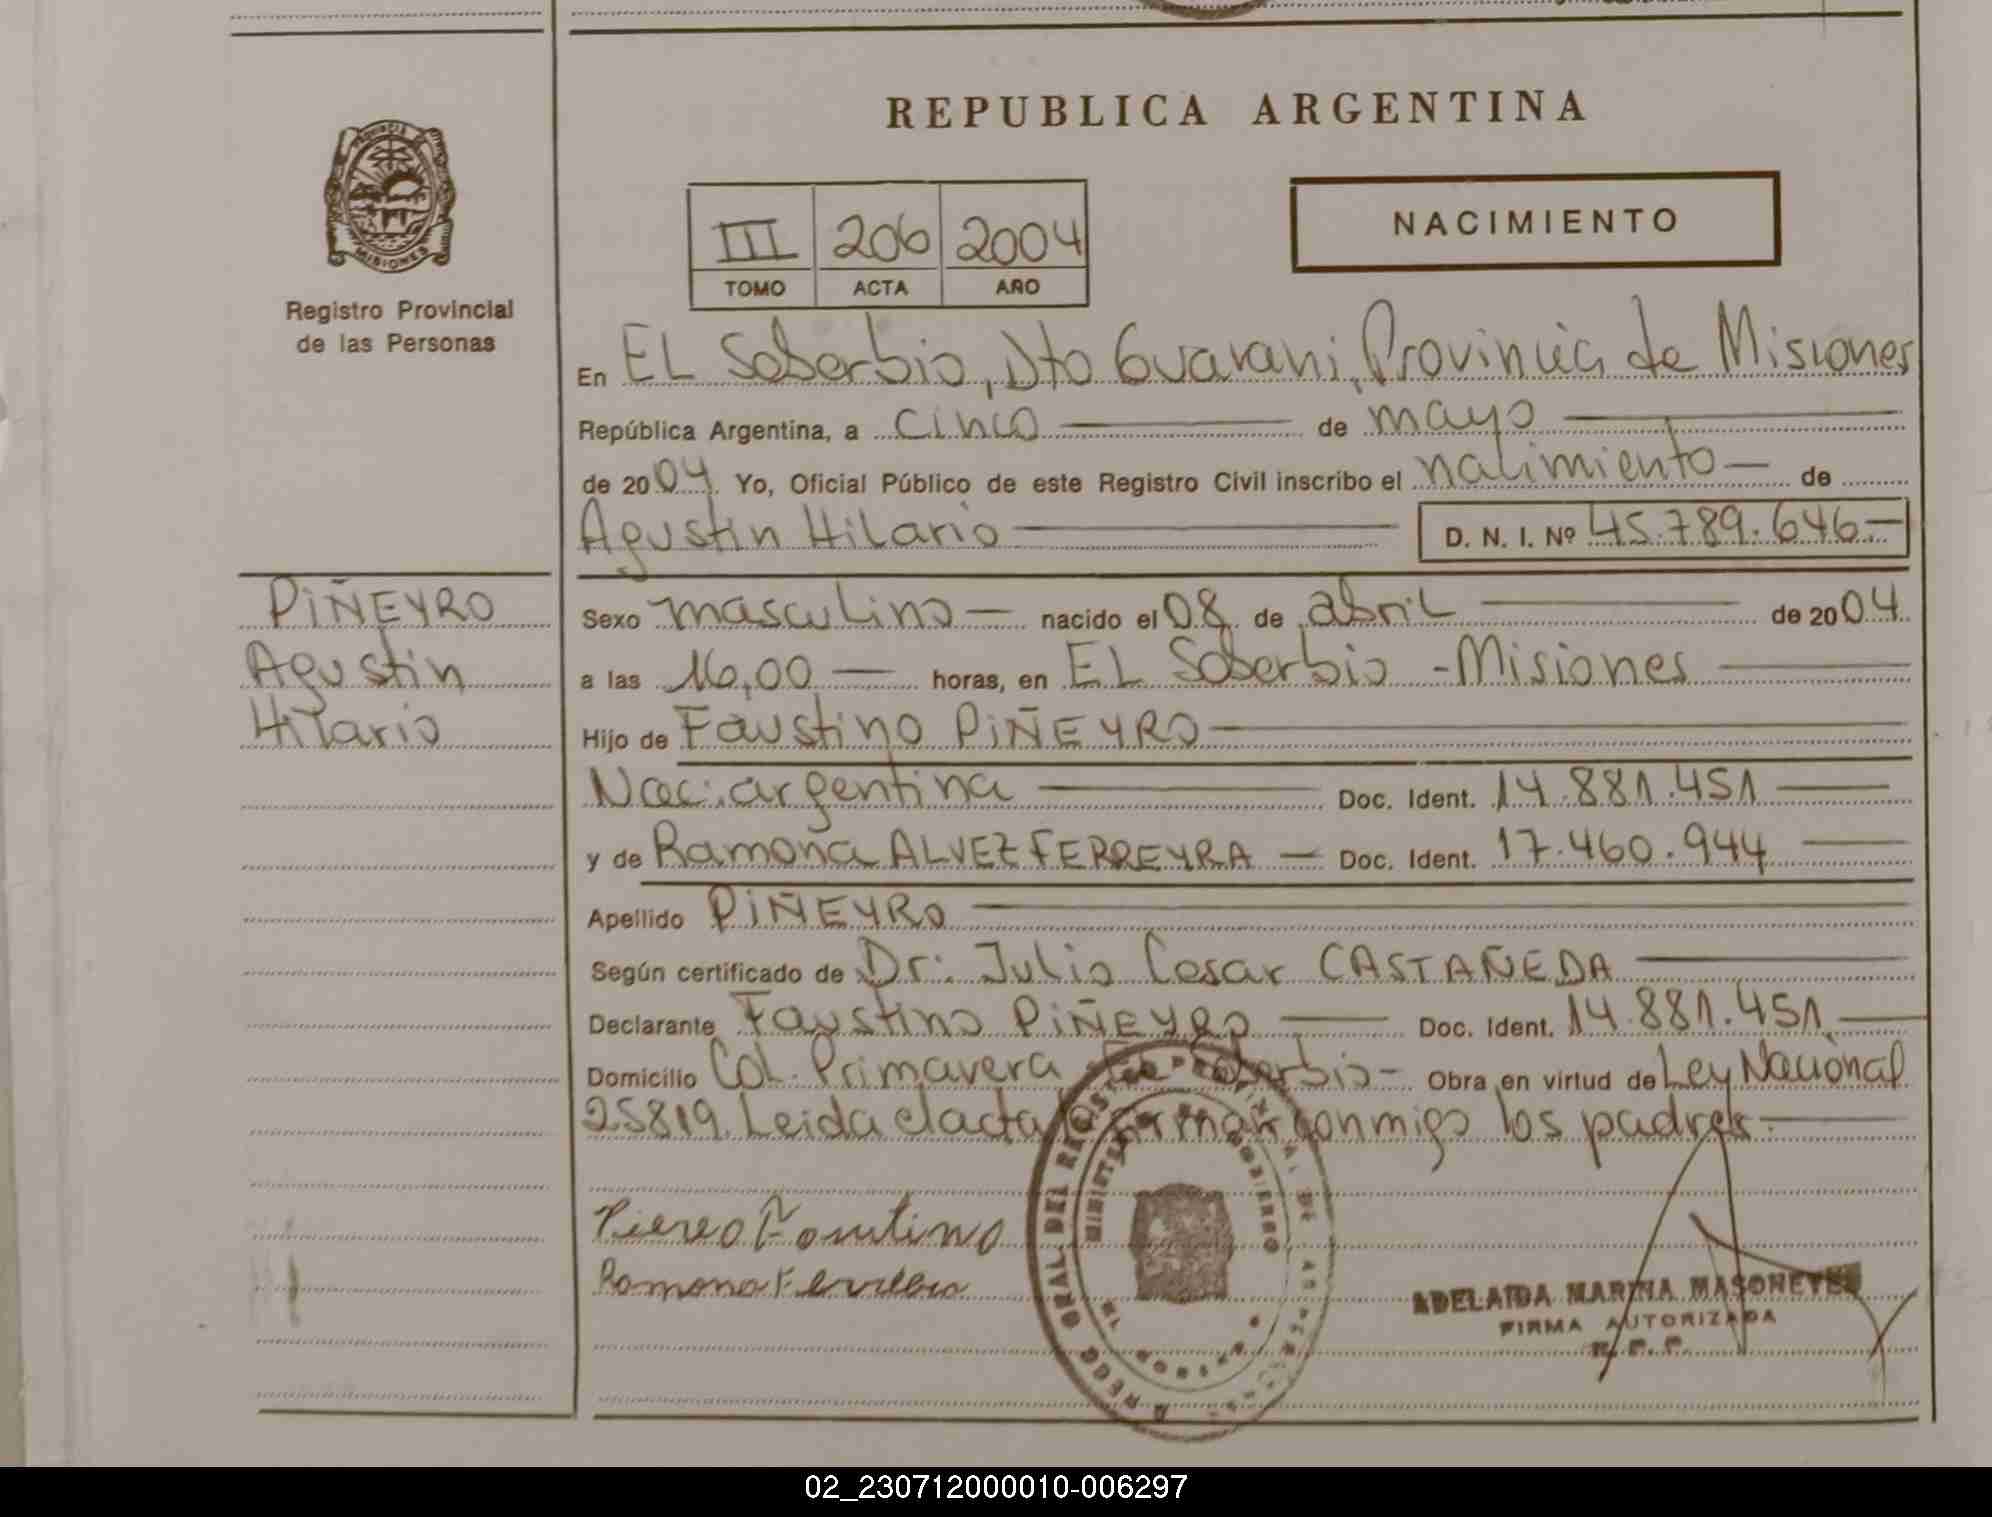 REPUBLICA ARGENTINA
PROVINCIA
MISIONES
Registro Provincial
de las Personas
III 206 2004
TOMO ACTA AÑO
NACIMIENTO
En EL Soberbio, Dto Guarani, Provincia de Misiones
República Argentina, a cinco de mayo
de 2004. Yo, Oficial Público de este Registro Civil inscribo el nacimiento de
Agustin Hilario D. N. I. Nº 45.789.646.-
PIÑEYRO
Agustin
Hilario
Sexo masculino nacido el 08 de abril de 2004.
a las 16,00 horas, en EL Soberbio - Misiones
Hijo de Faustino PIÑEYRO
Nac: argentina Doc. Ident. 14.881.451
y de Ramona ALVEZ FERREYRA Doc. Ident. 17.460.944
Apellido PIÑEYRO
Según certificado de Dr: Julio Cesar CASTAÑEDA
Declarante Faustino PIÑEYRO Doc. Ident. 14.881.451
Domicilio Col. Primavera El Soberbio- Obra en virtud de Ley Nacional
25819. Leida el acta firman conmigo los padres.
Ramona
GRAL DEL REGISTRO
MINISTERIO DE GOBIERNO
ADELAIDA MARINA
FIRMA AUTORIZADA
R. P. P.
02_230712000010-006297